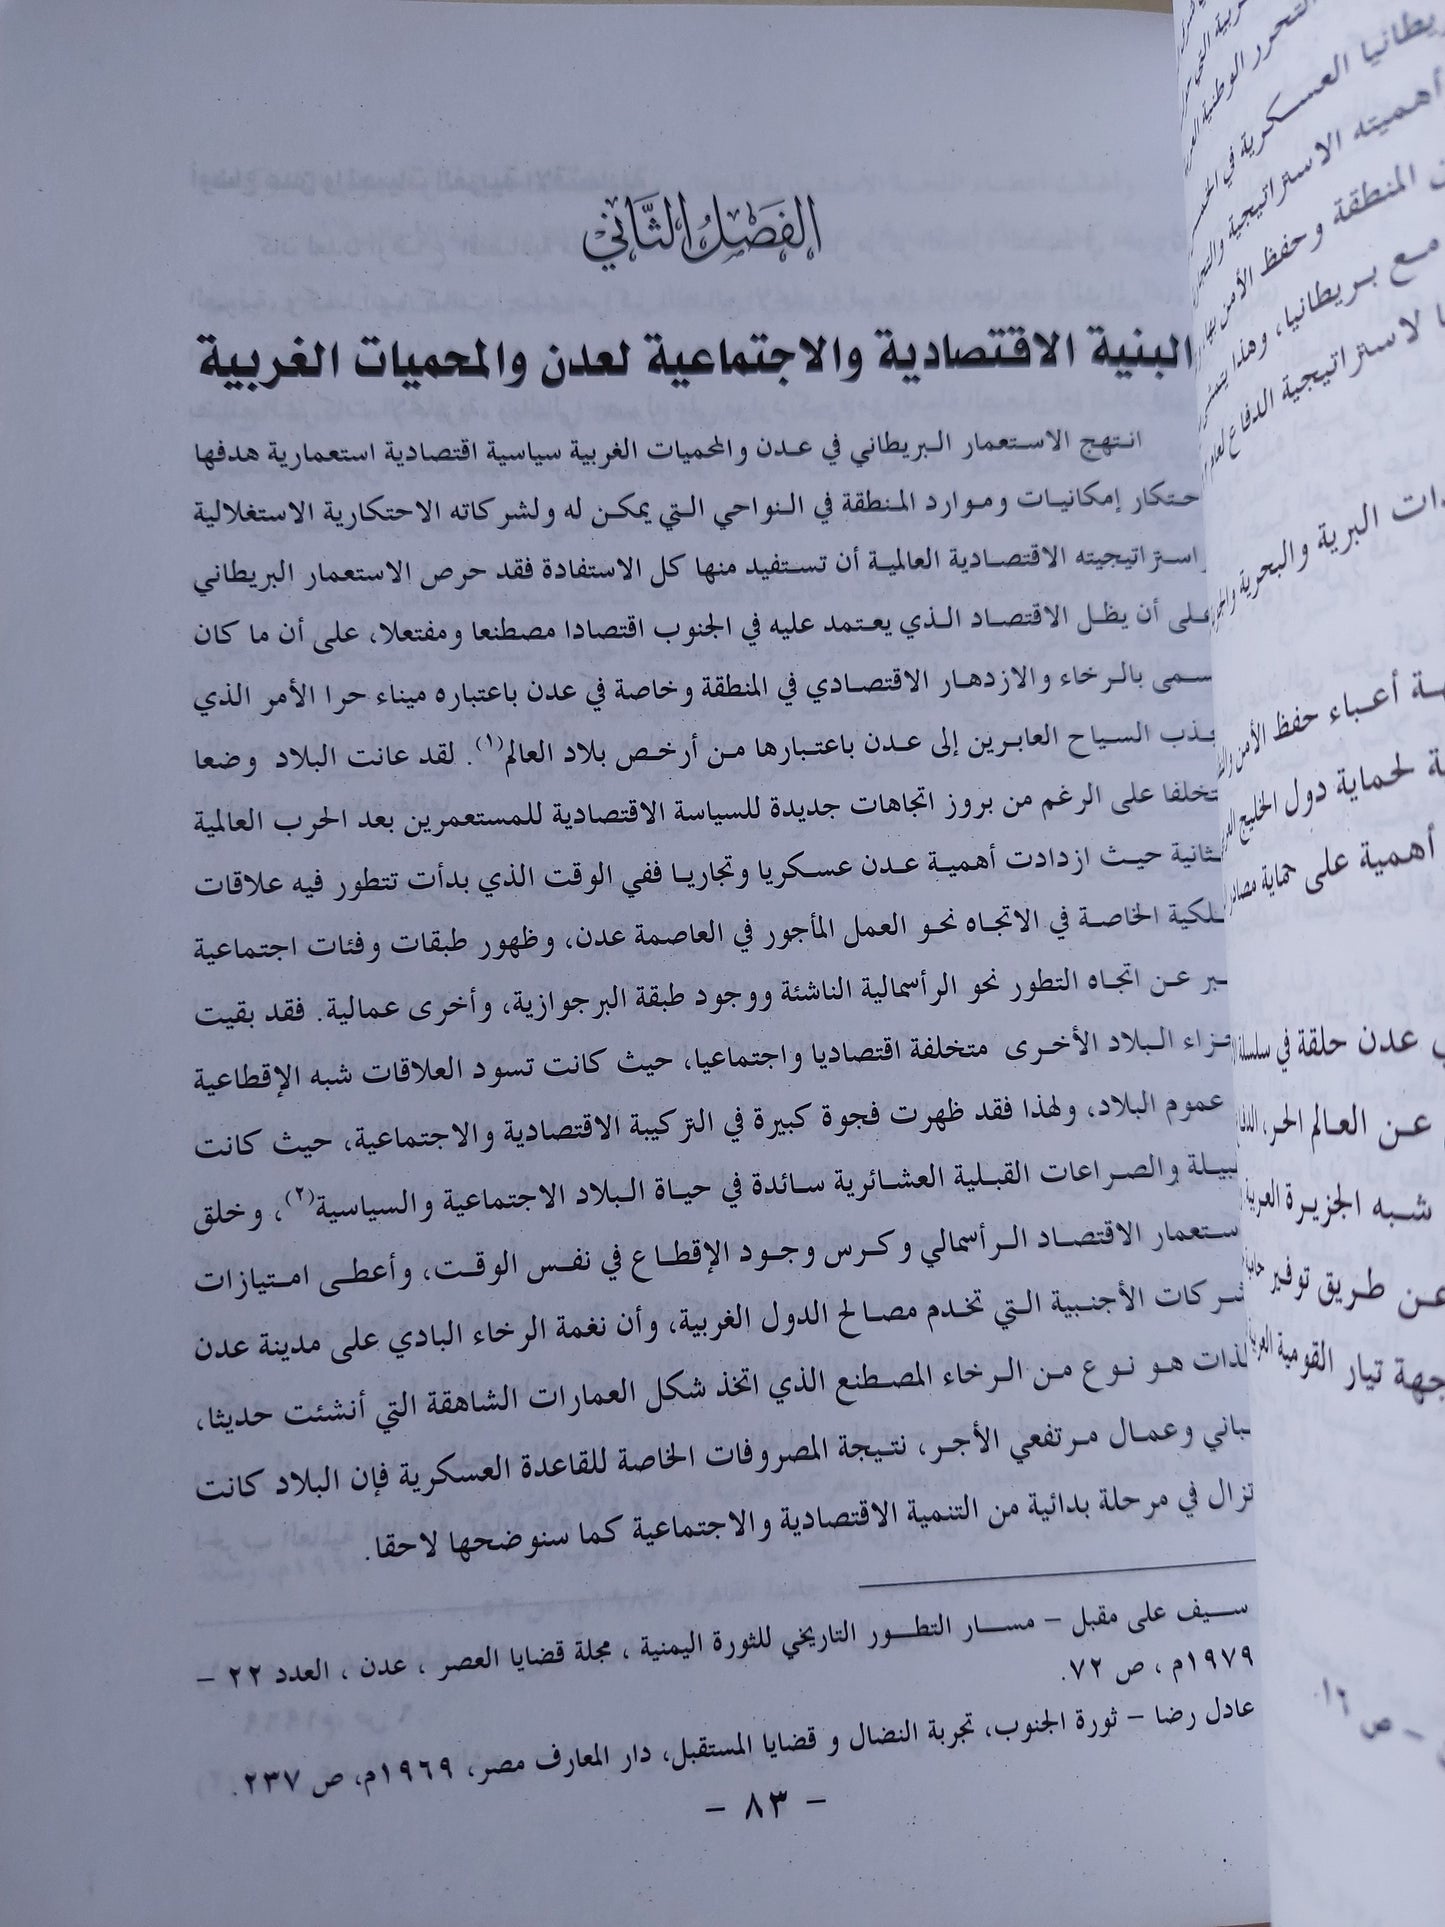 الفَصْلُ الثَّانِي
البنية الاقتصادية والاجتماعية لعدن والمحميات الغربية
انتهج الاستعمار البريطاني في عدن والمحميات الغربية سياسية اقتصادية استعمارية هدفها
حتكار إمكانيات وموارد المنطقة في النواحي التي يمكن له ولشركاته الاحتكارية الاستغلالية
استراتيجيته الاقتصادية العالمية أن تستفيد منها كل الاستفادة فقد حرص الاستعمار البريطاني
على أن يظل الاقتصاد الذي يعتمد عليه في الجنوب اقتصادا مصطنعا ومفتعلا، على أن ما كان
سمى بالرخاء والازدهار الاقتصادي في المنطقة وخاصة في عدن باعتباره ميناء حرا الأمر الذي
جذب السياح العابرين إلى عدن باعتبارها من أرخص بلاد العالم(١). لقد عانت البلاد وضعا
تخلفا على الرغم من بروز اتجاهات جديدة للسياسة الاقتصادية للمستعمرين بعد الحرب العالمية
لثانية حيث ازدادت أهمية عدن عسكريا وتجاريا ففي الوقت الذي بدأت تتطور فيه علاقات
لملكية الخاصة في الاتجاه نحو العمل المأجور في العاصمة عدن، وظهور طبقات وفئات اجتماعية
عبر عن اتجاه التطور نحو الرأسمالية الناشئة ووجود طبقة البرجوازية، وأخرى عمالية. فقد بقيت
جزاء البلاد الأخرى متخلفة اقتصاديا واجتماعيا، حيث كانت تسود العلاقات شبه الإقطاعية
عموم البلاد، ولهذا فقد ظهرت فجوة كبيرة في التركيبة الاقتصادية والاجتماعية، حيث كانت
قبيلة والصراعات القبلية العشائرية سائدة في حياة البلاد الاجتماعية والسياسية(٢)، وخلق
ستعمار الاقتصاد الرأسمالي وكرس وجود الإقطاع في نفس الوقت، وأعطى امتيازات
شركات الأجنبية التي تخدم مصالح الدول الغربية، وأن نغمة الرخاء البادي على مدينة عدن
لذات هو نوع من الرخاء المصطنع الذي اتخذ شكل العمارات الشاهقة التي أنشئت حديثا،
مباني وعمال مرتفعي الأجر، نتيجة المصروفات الخاصة للقاعدة العسكرية فإن البلاد كانت
تزال في مرحلة بدائية من التنمية الاقتصادية والاجتماعية كما سنوضحها لاحقا.
سيف على مقبل – مسار التطور التاريخي للثورة اليمنية ، مجلة قضايا العصر ، عدن ، العدد ٢٢ –
١٩٧٩م ، ص ٧٢.
عادل رضا – ثورة الجنوب، تجربة النضال و قضايا المستقبل، دار المعارف مصر، ١٩٦٩م، ص ٢٣٧.
– ٨٣ –
التحرر الوطنية
بريطانيا العسكرية في
أهميته الاستراتيجية
المنطقة وحفظ الأمن بها
مع بريطانيا، وهذا
لاستراتيجية الدفاع لعام
البرية والبحرية
أعباء حفظ الأمن
لحماية دول الخليج
أهمية على حماية مصادر
عدن حلقة في سلسلة
عن العالم الحر،
شبه الجزيرة العربية
عن طريق توفير
تيار القومية
– ص ١٦٠